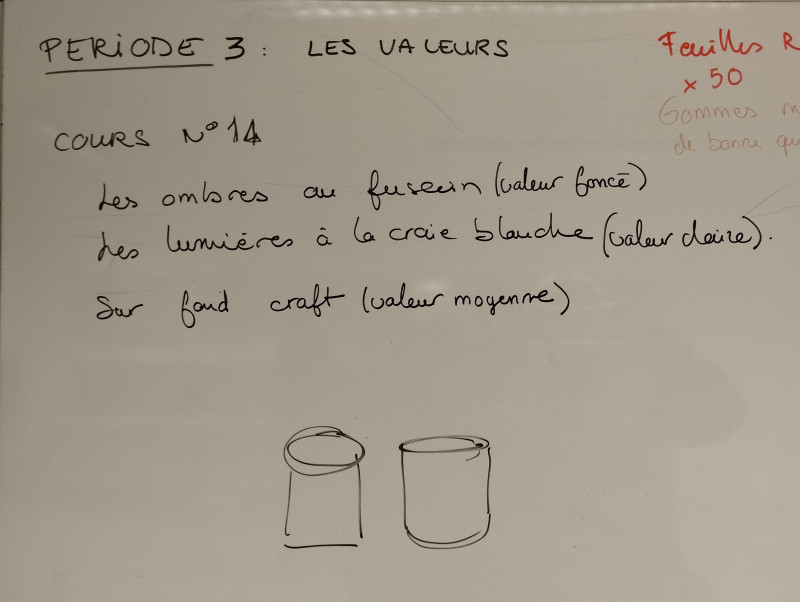 PERIODE 3 : LES VALEURS
COURS N° 14
Les ombres au fusain (valeur foncé)
Les lumières à la craie blanche (valeur claire).
Sur fond craft (valeur moyenne)
Feuilles R
x 50
Gommes m
de bonne qu